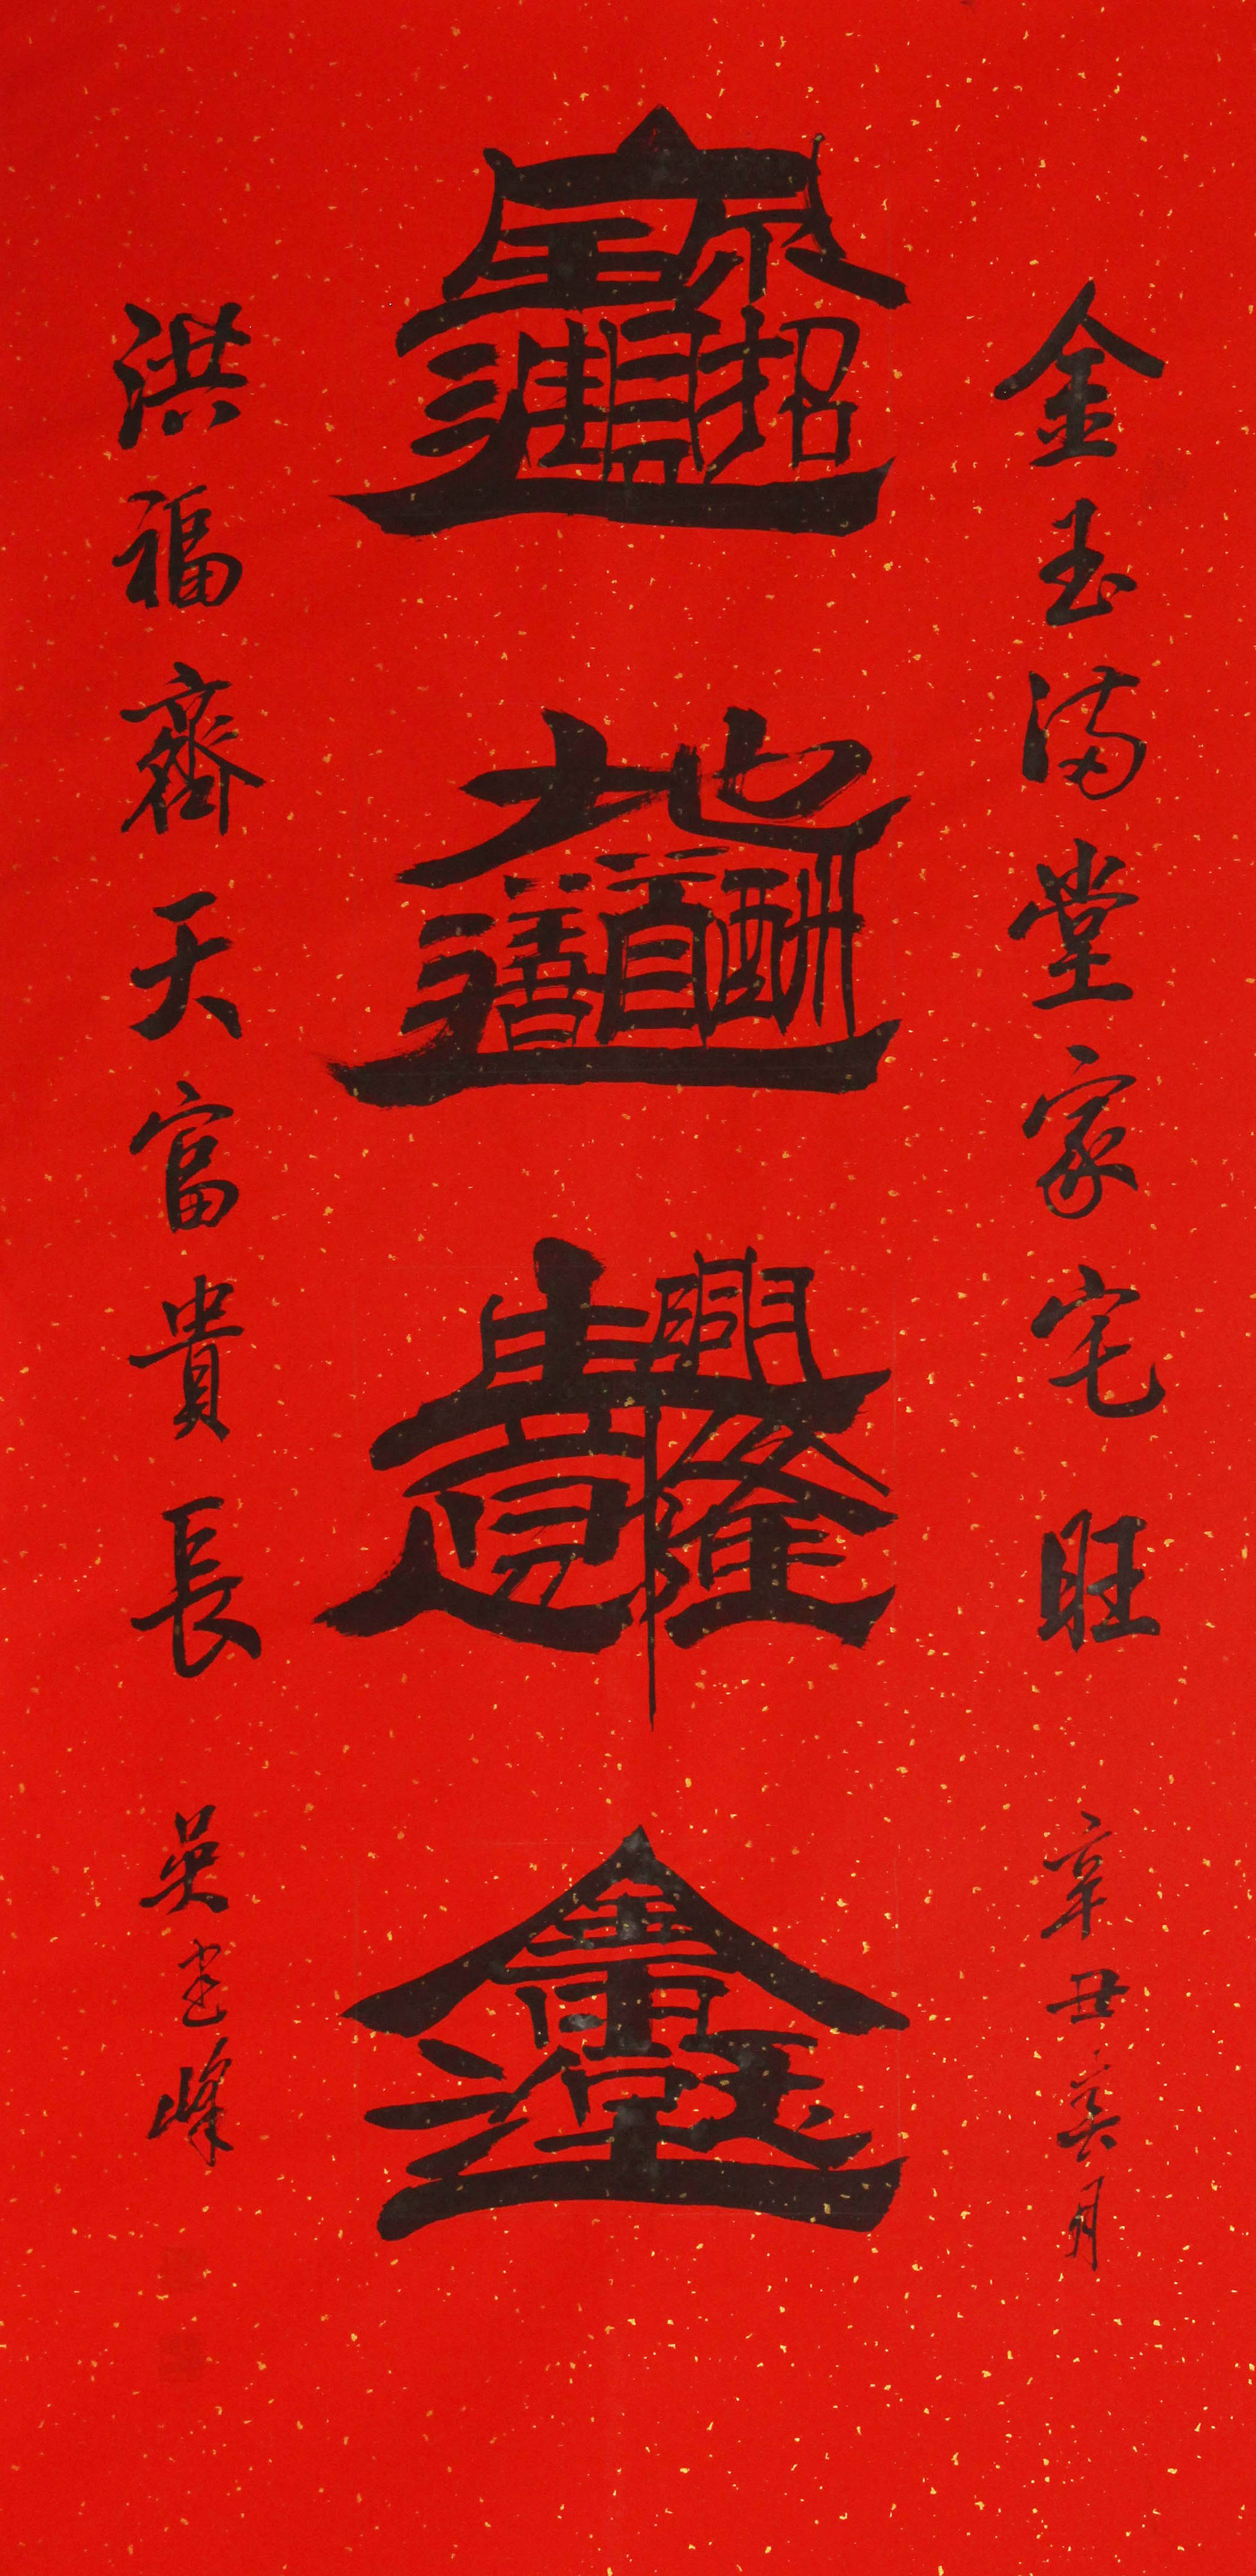 金玉滿堂家宅旺
辛丑亥月
招財進寶
天地酬道善
生意興隆
黃金滿堂玉
洪福齊天富貴長
吳建峰